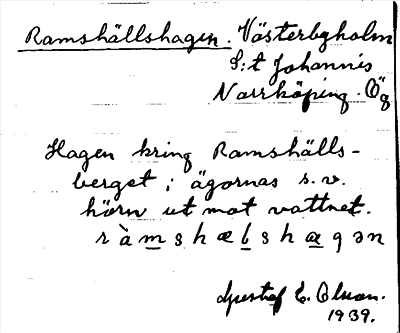 Ramshällshagen. Västerbyholm
S:t Johannis
Norrköping. Ög
Hagen kring Ramshälls-
berget i ägornas s.v.
hörn ut mot vattnet.
ràmshælshæqən
Gustaf E. Olsson.
1939.